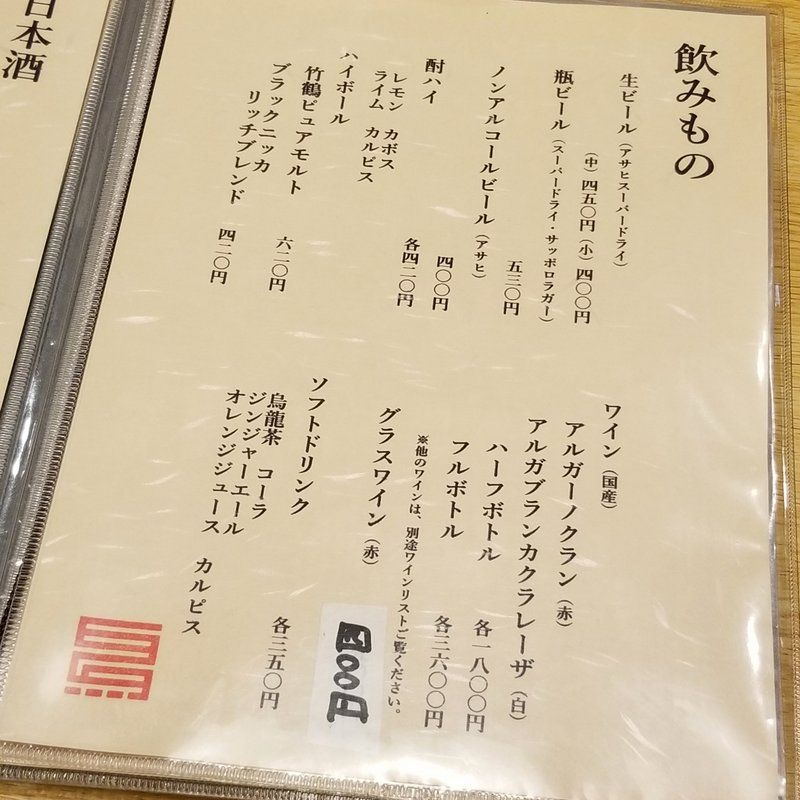 日本酒
飲みもの
生ビール（アサヒスーパードライ）
（中）四五〇円（小）四〇〇円
瓶ビール（スーパードライ・サッポロラガー）
五三〇円
ノンアルコールビール（アサヒ）
四〇〇円
酎ハイ
レモン カボス
ライム カルピス
各四二〇円
ハイボール
竹鶴ピュアモルト
六二〇円
ブラックニッカ
リッチブレンド
四二〇円
ワイン（国産）
アルガーノクラン（赤）
アルガブランカクラレーザ（白）
ハーフボトル
各一八〇〇円
フルボトル
各三六〇〇円
※他のワインは、別途ワインリストご覧ください。
グラスワイン（赤）
四〇〇円
ソフトドリンク
烏龍茶 コーラ
ジンジャーエール
オレンジジュース カルピス
各三五〇円